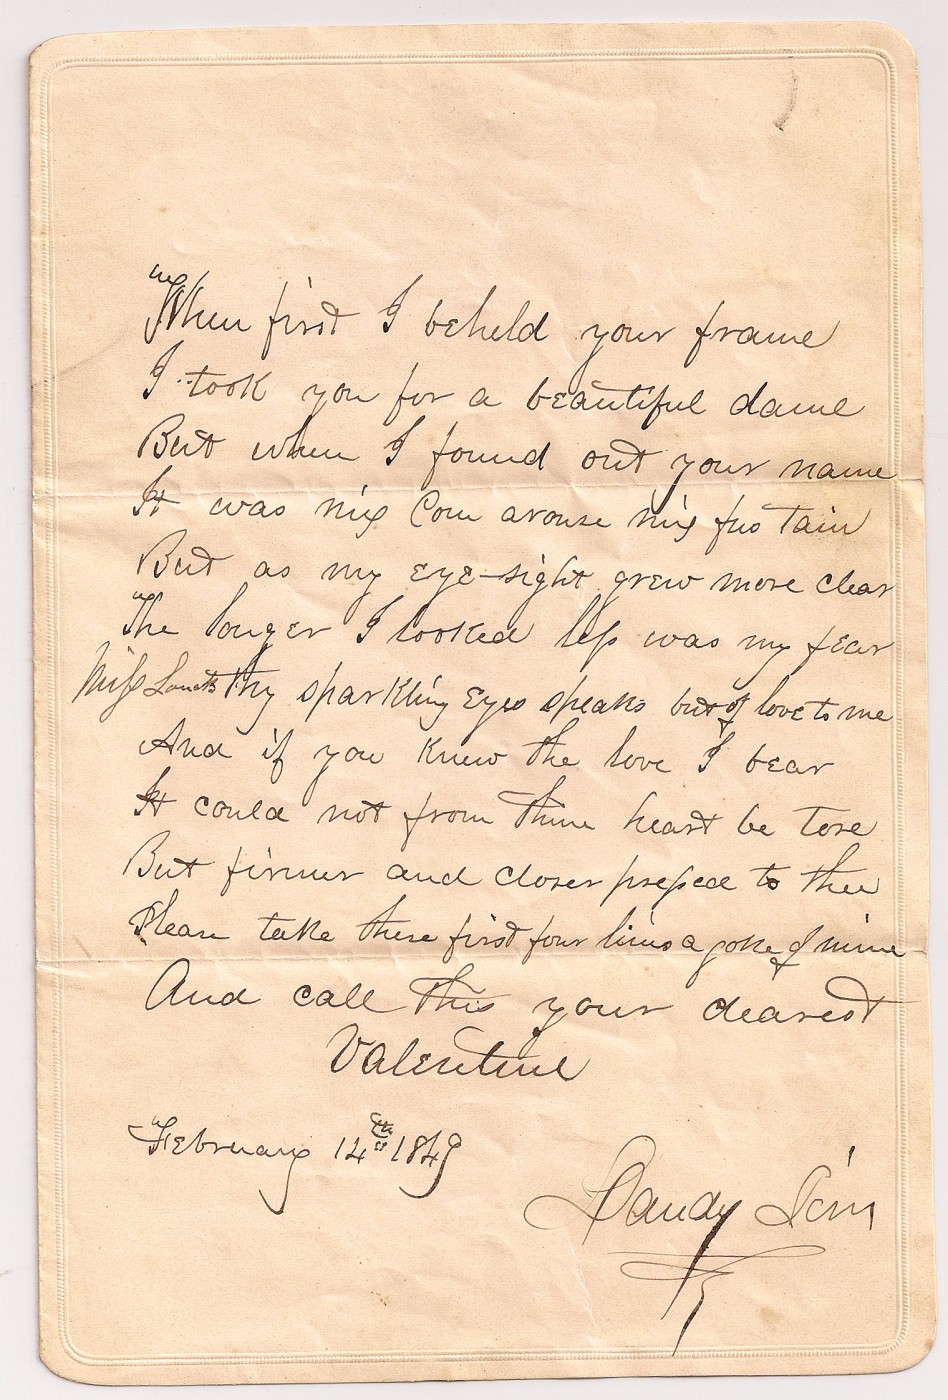 When first I beheld your frame
I took you for a beautiful dame
But when I found out your name
It was nix Com arouse nix fus tain
But as my eye-sight grew more clear
The longer I looked less was my fear
Miss thy sparkling Eyes speaks but of love to me
And if you knew the love I bear
It could not from thine heart be tore
But firmer and closer pressed to thee
Please take these first four lines a joke of mine
And call this your dearest
Valentine
February 14th 1849
Dandy Jim